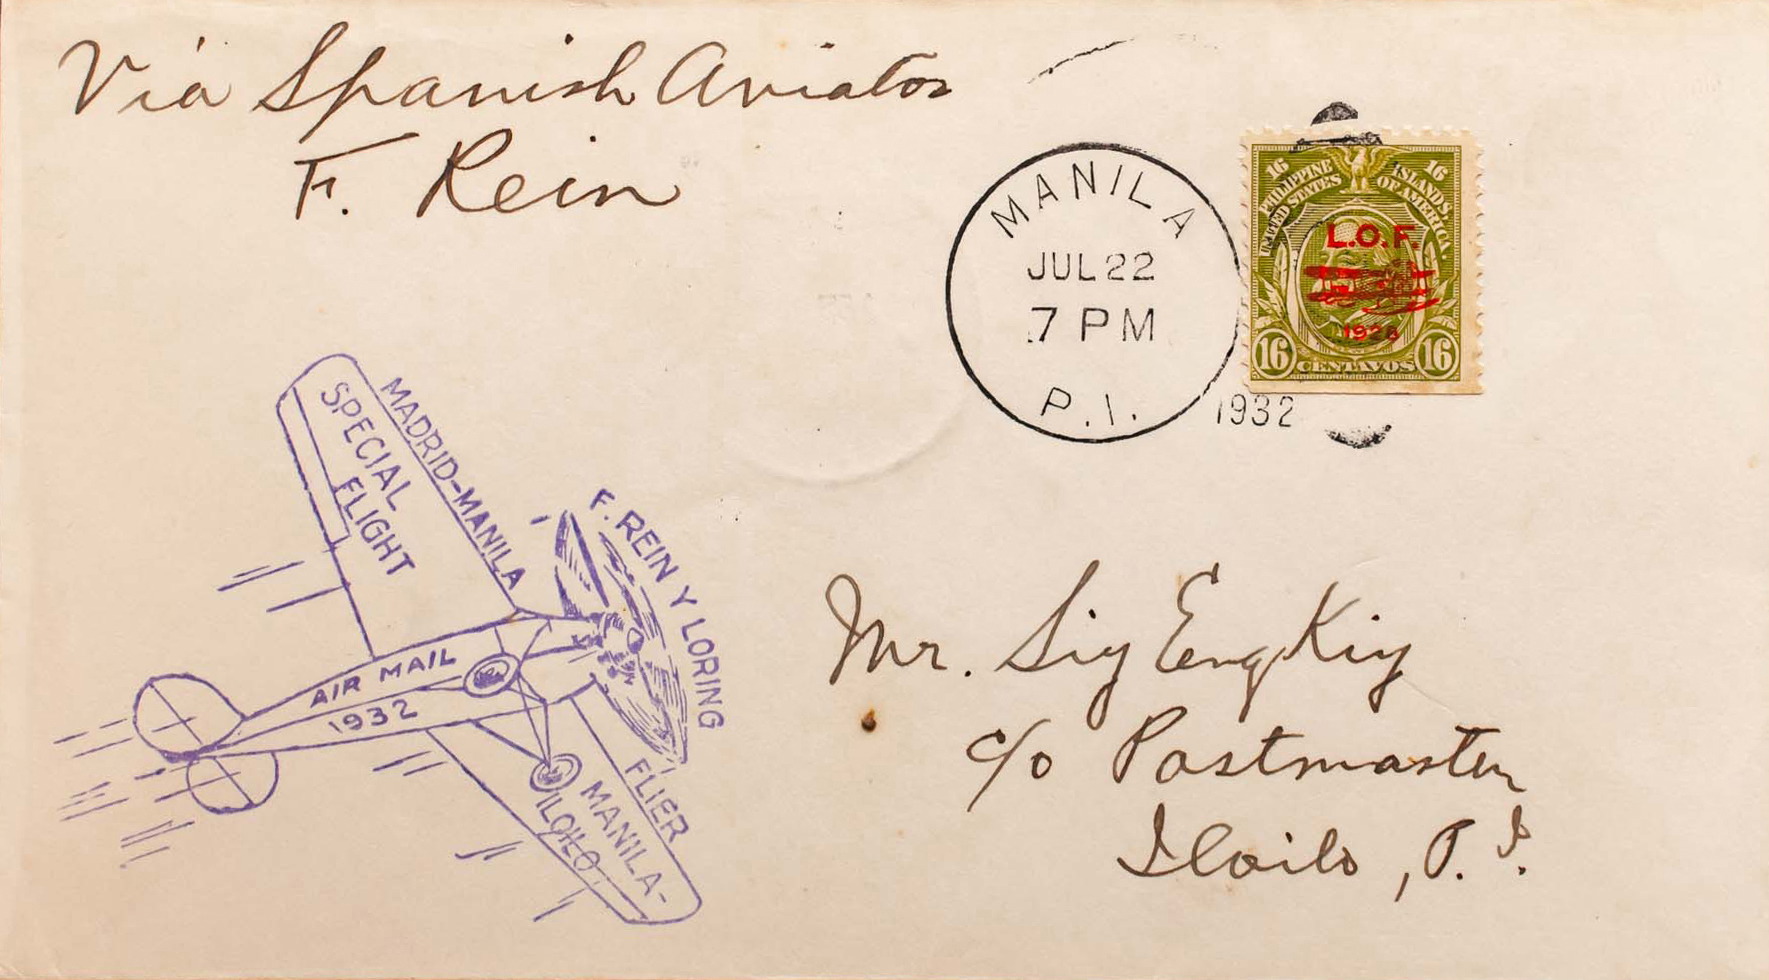 Via Spanish Aviator
F. Rein
MANILA
JUL 22
7 PM
P.I.
1932
16 16
PHILIPPINE ISLANDS
UNITED STATES OF AMERICA
L.O.F.
1928
16 CENTAVOS 16
SPECIAL
FLIGHT
MADRID-MANILA
F. REIN Y LORING
AIR MAIL
1932
FLIER
MANILA-
ILOILO
Mr. Sig Eng Kiy
c/o Postmaster
Iloilo, P. I.